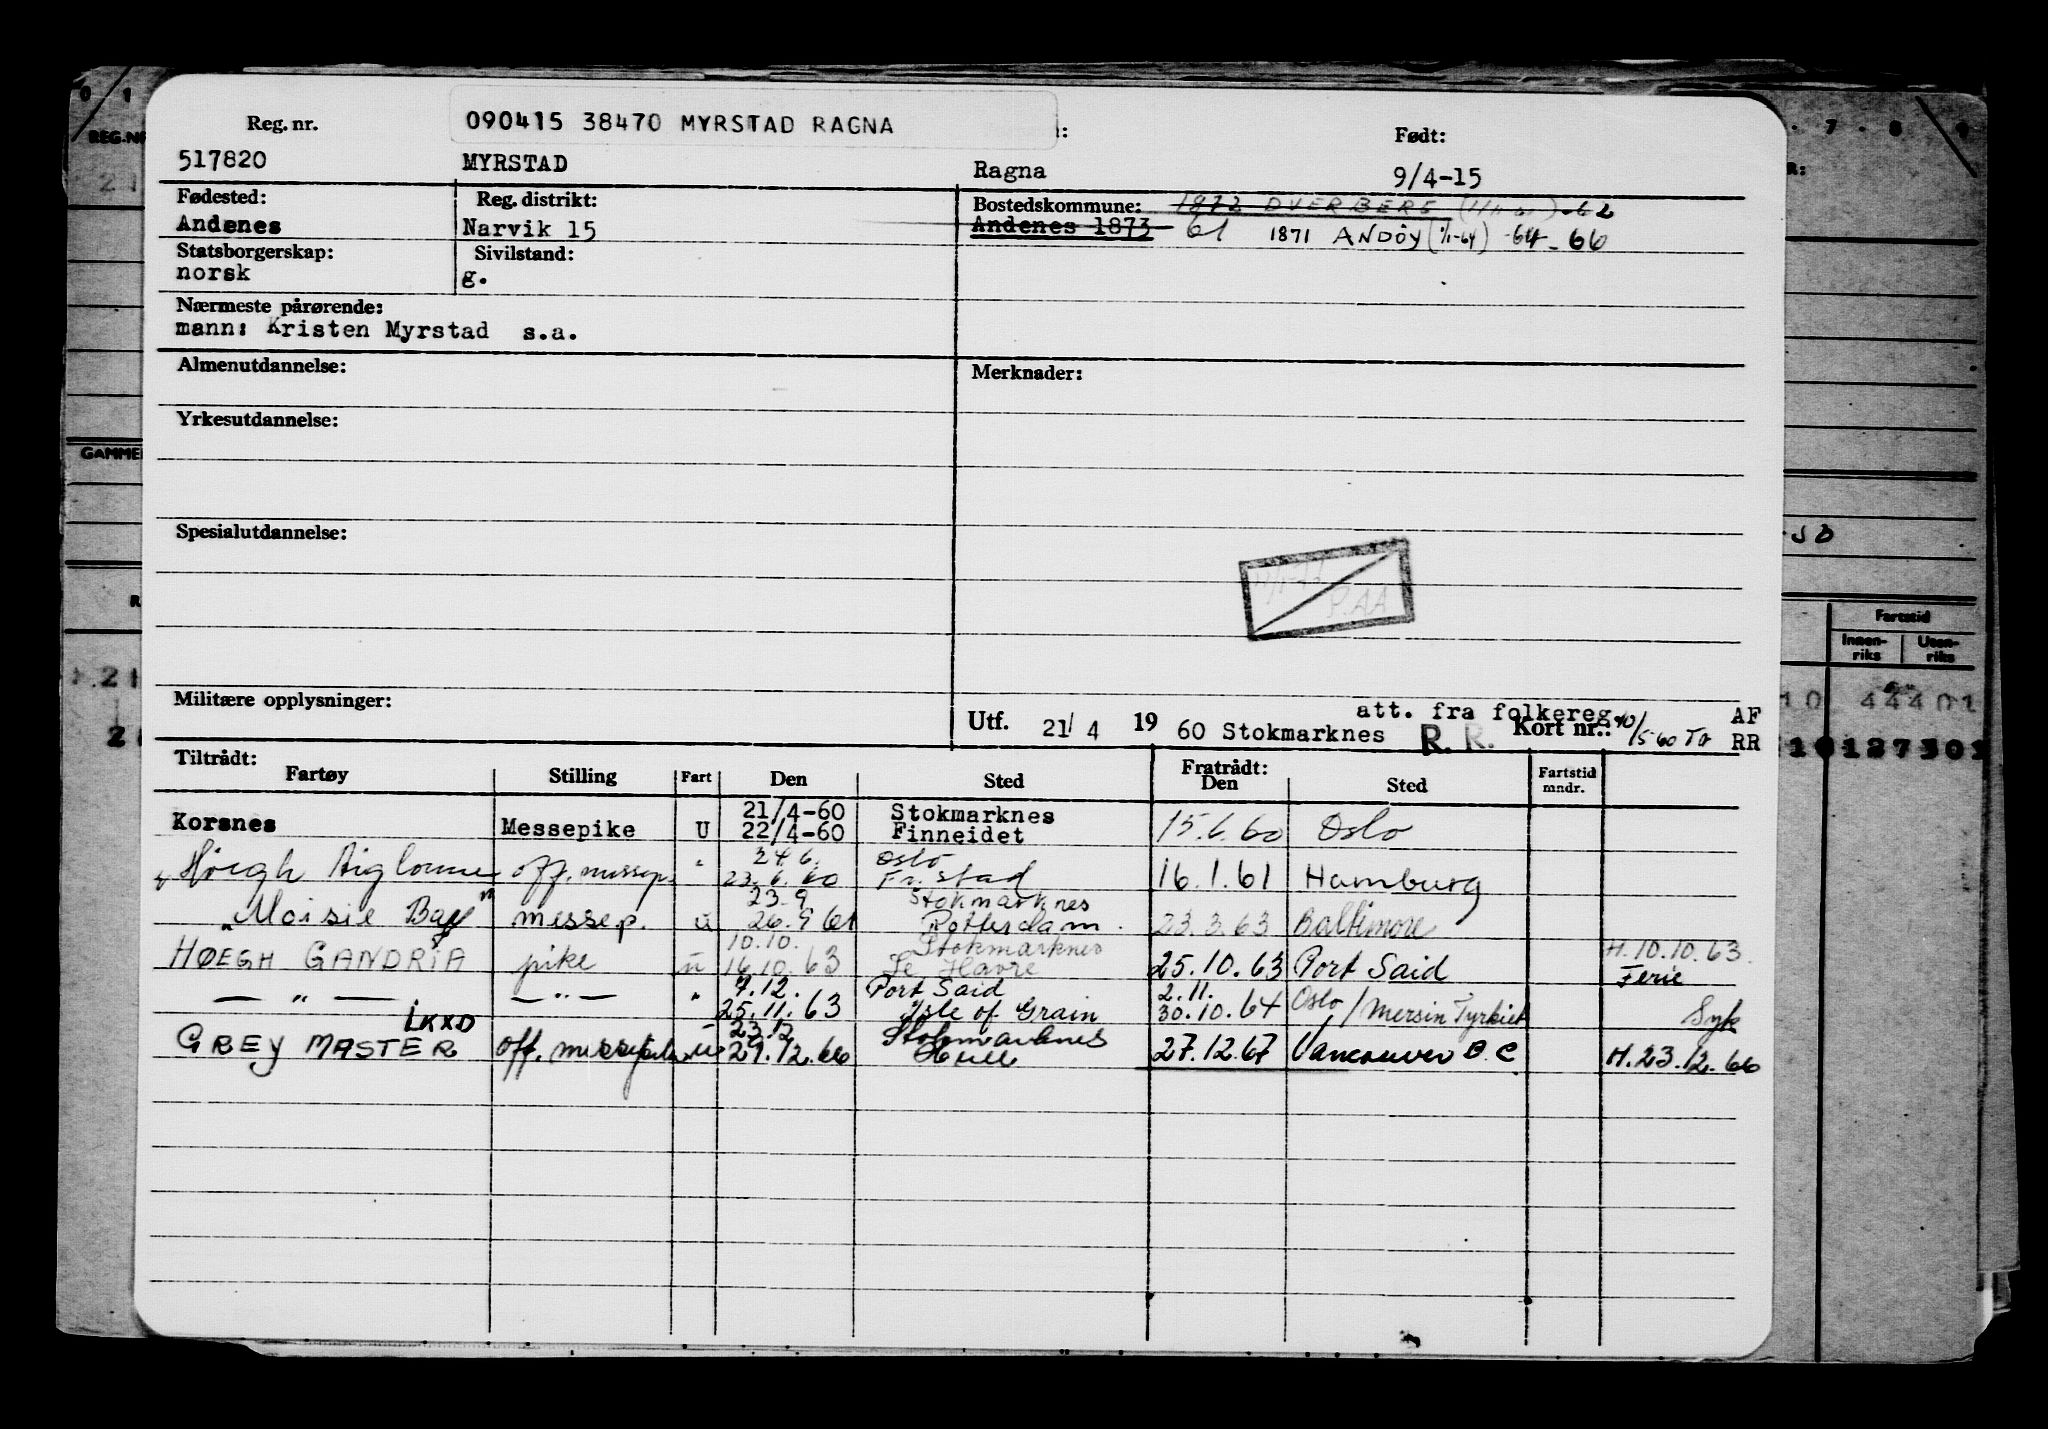 Reg. nr.
090415 38470 MYRSTAD RAGNA
Født:
517820 MYRSTAD Ragna 9/4-15
Fødested: Reg. distrikt: Bostedskommune: 1872 DVERBERG -62
Andenes Narvik 15 Andenes 1873 61 1871 ANDØY (1/1-64) -64-66
Statsborgerskap: Sivilstand:
norsk g.
Nærmeste pårørende:
mann: Kristen Myrstad s.a.
Almenutdannelse: Merknader:
Yrkesutdannelse:
Spesialutdannelse:
P.AA
Militære opplysninger:
att. fra folkereg. AF
Utf. 21/4 1960 Stokmarknes R. R. Kort nr.: RR
Tiltrådt: Fratrådt:
Fartøy Stilling Fart Den Sted Den Sted Fartstid mndr.
21/4-60 Stokmarknes
Korsnes Messepike U 22/4-60 Finneidet 15.6.60 Oslo
24.6. Oslo
"Høegh Aiglonne off. messep. " 23.6.60 Fr.stad 16.1.61 Hamburg
23-9 Stokmarknes
"Moisie Bay" messep. u 26.9 61 Rotterdam. 23.3.63 Baltimore
10.10. Stokmarknes H.10.10.63.
HØEGH GANDRIA pike u 16.10.63 Le Havre 25.10.63 Port Said Ferie
7.12. Port Said 2.11.
— " — — " — " 25.11.63 Isle of Grain 30.10.64 Oslo / Mersin Tyrkiet Syk
LKXD 23.12 Stokmarknes
GREY MASTER off. messepike u 27.12.66 Hull 27.12.67 Vancouver B.C H.23.12.66
REG.NR
GAMMEL
Fartstid
Innen-riks Uten-riks
44401